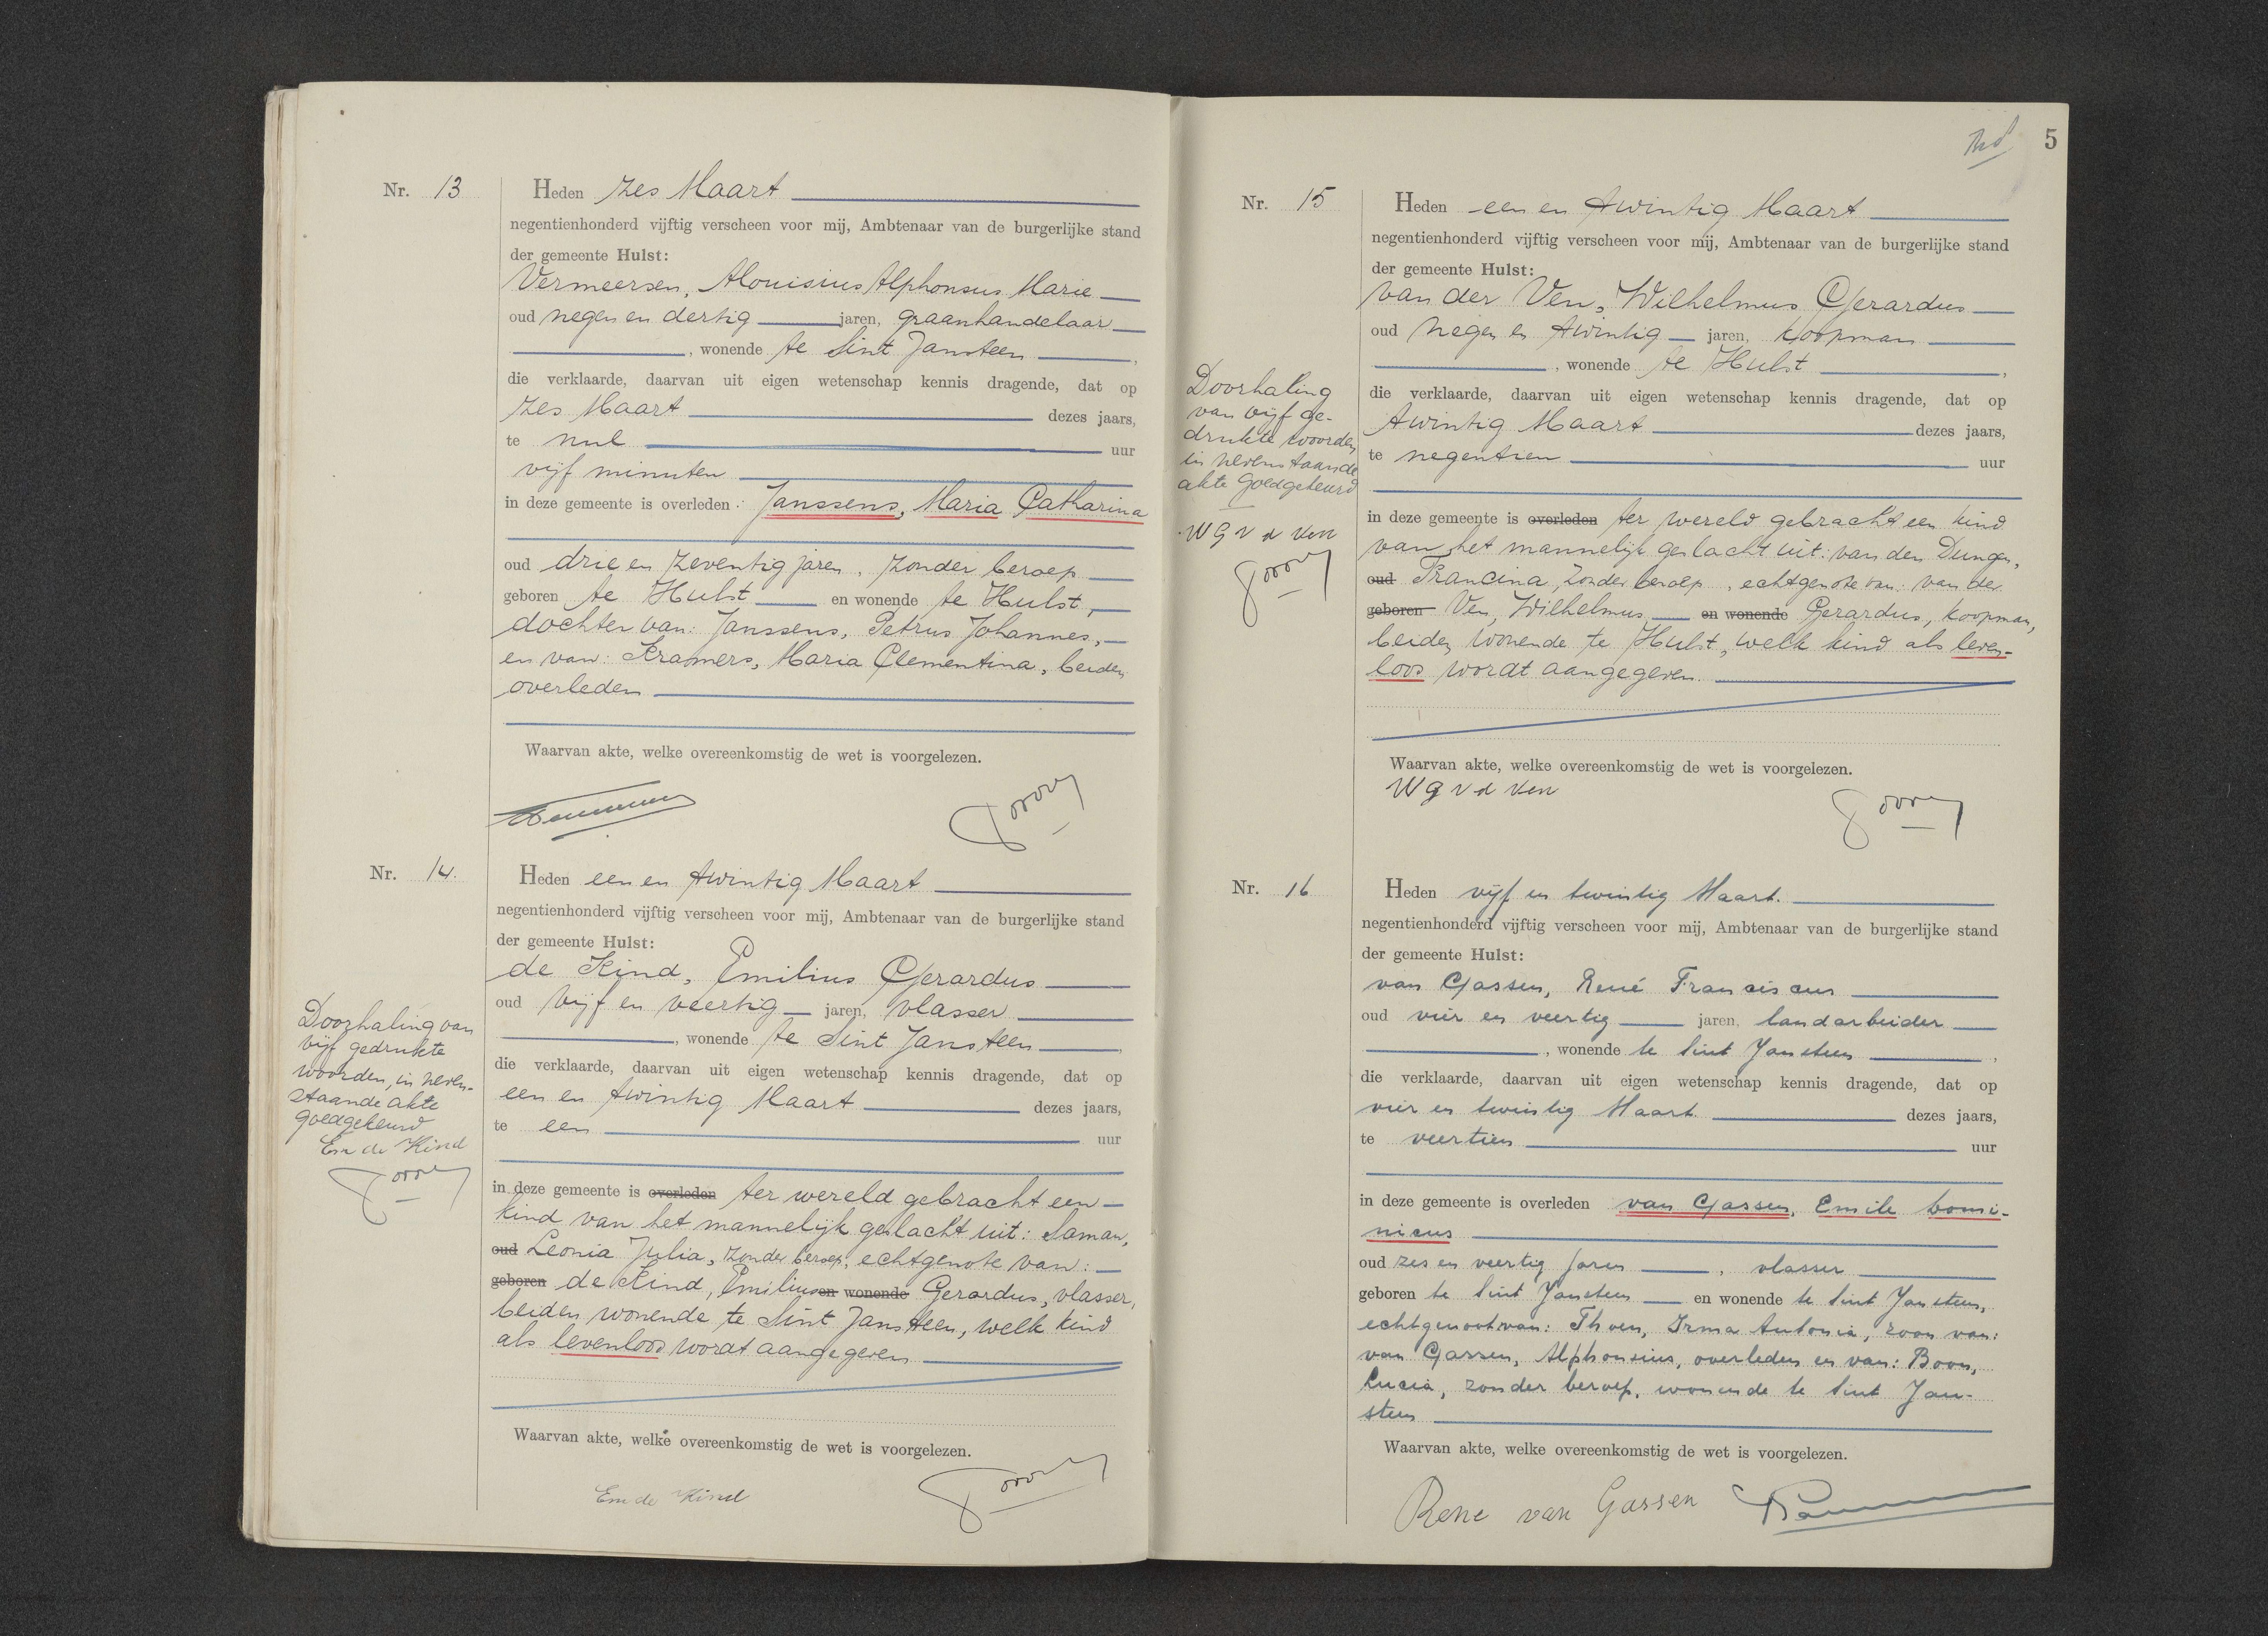 Nr. 13
Heden zes Maart
negentienhonderd vijftig verscheen voor mij, Ambtenaar van de burgerlijke stand
der gemeente Hulst:
Vermeersen, Alouisius Alphonsus Marie
oud negen en dertig jaren, graanhandelaar
, wonende te Sint Jansteen,
die verklaarde, daarvan uit eigen wetenschap kennis dragende, dat op
zes Maart dezes jaars,
te nul uur
vijf minuten
in deze gemeente is overleden: Janssens, Maria Catharina
oud drie en zeventig jaren, zonder beroep
geboren te Hulst en wonende te Hulst,
dochter van: Janssens, Petrus Johannes,
en van: Kramers, Maria Clementina, beiden
overleden
Waarvan akte, welke overeenkomstig de wet is voorgelezen.
Nr. 14.
Heden een en twintig Maart
negentienhonderd vijftig verscheen voor mij, Ambtenaar van de burgerlijke stand
der gemeente Hulst:
de Kind, Emilius Gerardus
oud vijf en veertig jaren, vlasser
, wonende te Sint Jansteen,
die verklaarde, daarvan uit eigen wetenschap kennis dragende, dat op
een en twintig Maart dezes jaars,
te een uur
in deze gemeente is overleden ter wereld gebracht een
kind van het mannelijk geslacht uit: Saman,
oud Leonia Julia, zonder beroep, echtgenote van:
geboren de Kind, Emilius en wonende Gerardus, vlasser,
beiden wonende te Sint Jansteen, welk kind
als levenloos wordt aangegeven
Waarvan akte, welke overeenkomstig de wet is voorgelezen.
Em de Kind
Doorhaling van
vijf gedrukte
woorden, in neven-
staande akte
goedgekeurd
Em de Kind
5
Nr. 15
Heden een en twintig Maart
negentienhonderd vijftig verscheen voor mij, Ambtenaar van de burgerlijke stand
der gemeente Hulst:
van der Ven, Wilhelmus Gerardus
oud negen en twintig jaren, koopman
, wonende te Hulst,
die verklaarde, daarvan uit eigen wetenschap kennis dragende, dat op
twintig Maart dezes jaars,
te negentien uur
in deze gemeente is overleden ter wereld gebracht een kind
van het mannelijk geslacht uit: van den Dungen,
oud Francina, zonder beroep, echtgenote van: van de
geboren Ven, Wilhelmus en wonende Gerardus, koopman,
beiden wonende te Hulst, welk kind als leven-
loos wordt aangegeven.
Waarvan akte, welke overeenkomstig de wet is voorgelezen.
W G v d Ven
Doorhaling
van vijf ge-
drukte woorden
in nevenstaande
akte goedgekeurd
W G v d Ven
Nr. 16
Heden vijf en twintig Maart.
negentienhonderd vijftig verscheen voor mij, Ambtenaar van de burgerlijke stand
der gemeente Hulst:
van Gassen, René Franciscus
oud vier en veertig jaren, landarbeider
, wonende te Sint Jansteen,
die verklaarde, daarvan uit eigen wetenschap kennis dragende, dat op
vier en twintig Maart. dezes jaars,
te veertien uur
in deze gemeente is overleden van Gassen, Emile Domi-
nicus
oud zes en veertig jaren, vlasser
geboren te Sint Jansteen en wonende te Sint Jansteen,
echtgenoot van: Thoen, Irma Antonia, zoon van:
van Gassen, Alphonsius, overleden en van: Boon,
Lucia, zonder beroep, wonende te Sint Jan-
steen
Waarvan akte, welke overeenkomstig de wet is voorgelezen.
Rene van Gassen